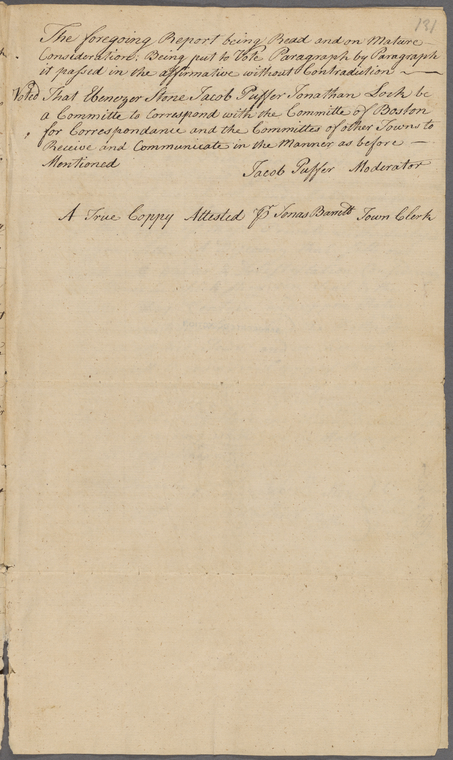 131
The foregoing Report being Read and on Mature
Consideration. Being put to Vote Paragraph by Paragraph
it passed in the affirmative without Contradiction
Voted That Ebenezer Stone Jacob Puffer Jonathan Lock be
a Committe to Correspond with the Committe of Boston
for Correspondance and the Committes of other Towns to
Receive and Communicate in the Manner as before
Mentioned Jacob Puffer Moderator
A True Coppy Attested Pr Jonas Barrett Town Clerk